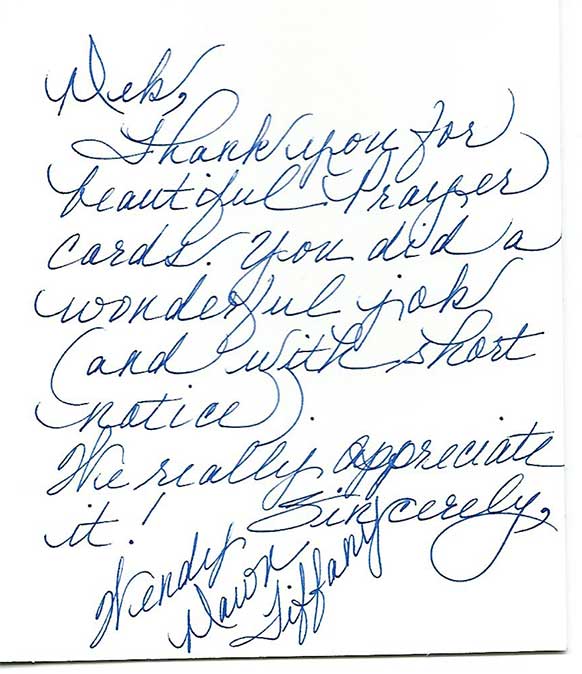 Deb,
Thank you for
beautiful Prayer
cards. You did a
wonderful job
(and with short
notice).
We really appreciate
it!
Sincerely,
Wendy
Dawn
Tiffany